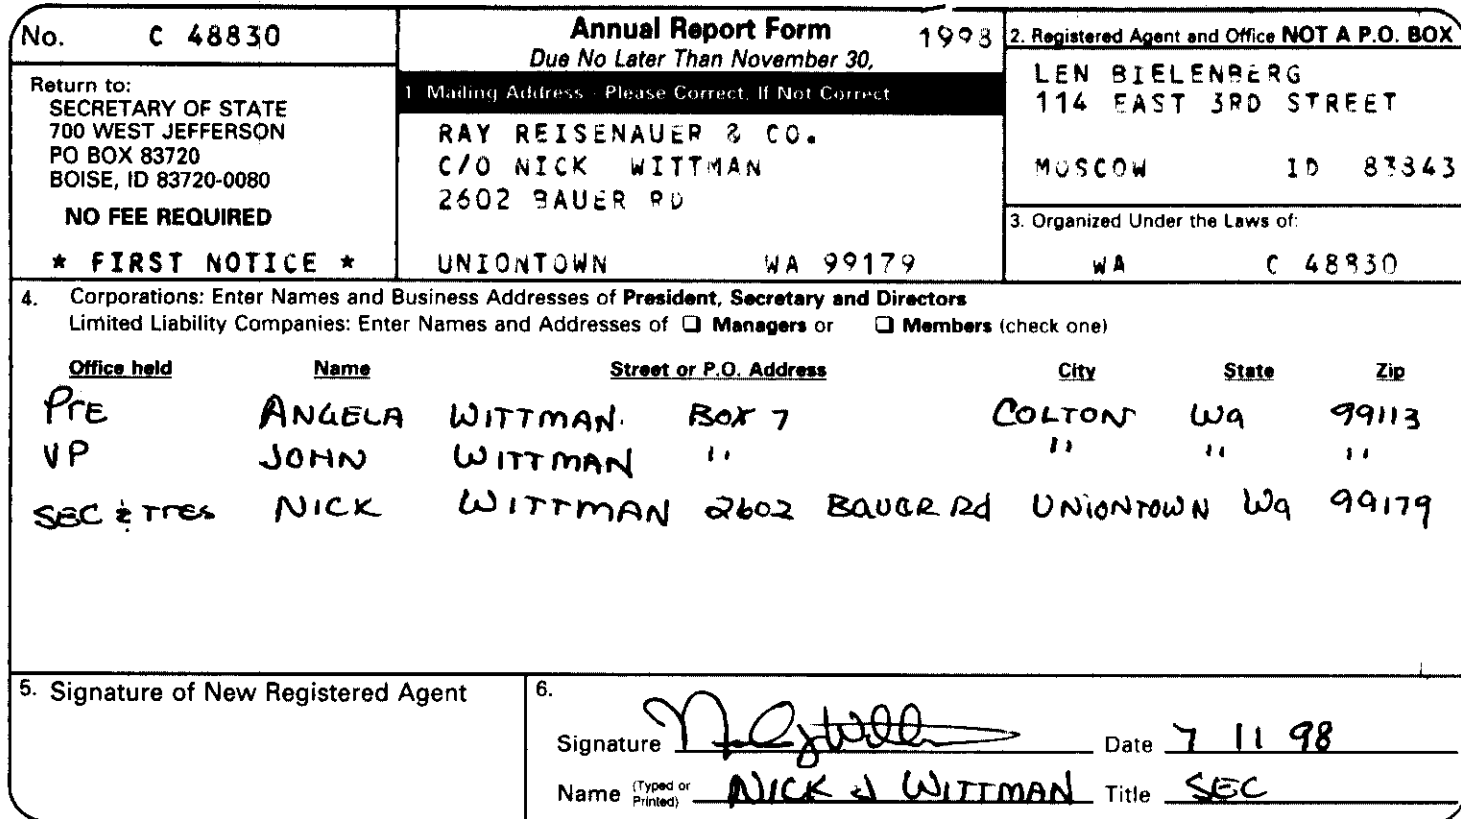 No. C 48830
Annual Report Form 1998
Due No Later Than November 30,
Return to:
SECRETARY OF STATE
700 WEST JEFFERSON
PO BOX 83720
BOISE, ID 83720-0080
NO FEE REQUIRED
* FIRST NOTICE *
1 Mailing Address - Please Correct, If Not Correct
RAY REISENAUER & CO.
C/O NICK WITTMAN
2602 BAUER RD
UNIONTOWN WA 99179
2. Registered Agent and Office NOT A P.O. BOX
LEN BIELENBERG
114 EAST 3RD STREET
MOSCOW ID 83843
3. Organized Under the Laws of:
WA C 48830
4. Corporations: Enter Names and Business Addresses of President, Secretary and Directors
Limited Liability Companies: Enter Names and Addresses of ❑ Managers or ❑ Members (check one)
Office held Name Street or P.O. Address City State Zip
PrE ANGELA WITTMAN. BOX 7 COLTON Wa 99113
VP JOHN WITTMAN " " " "
SEC & Tres NICK WITTMAN 2602 BAUER Rd UNIONTOWN Wa 99179
5. Signature of New Registered Agent
6.
Signature Date 7 11 98
Name (Typed or Printed) NICK J WITTMAN Title SEC